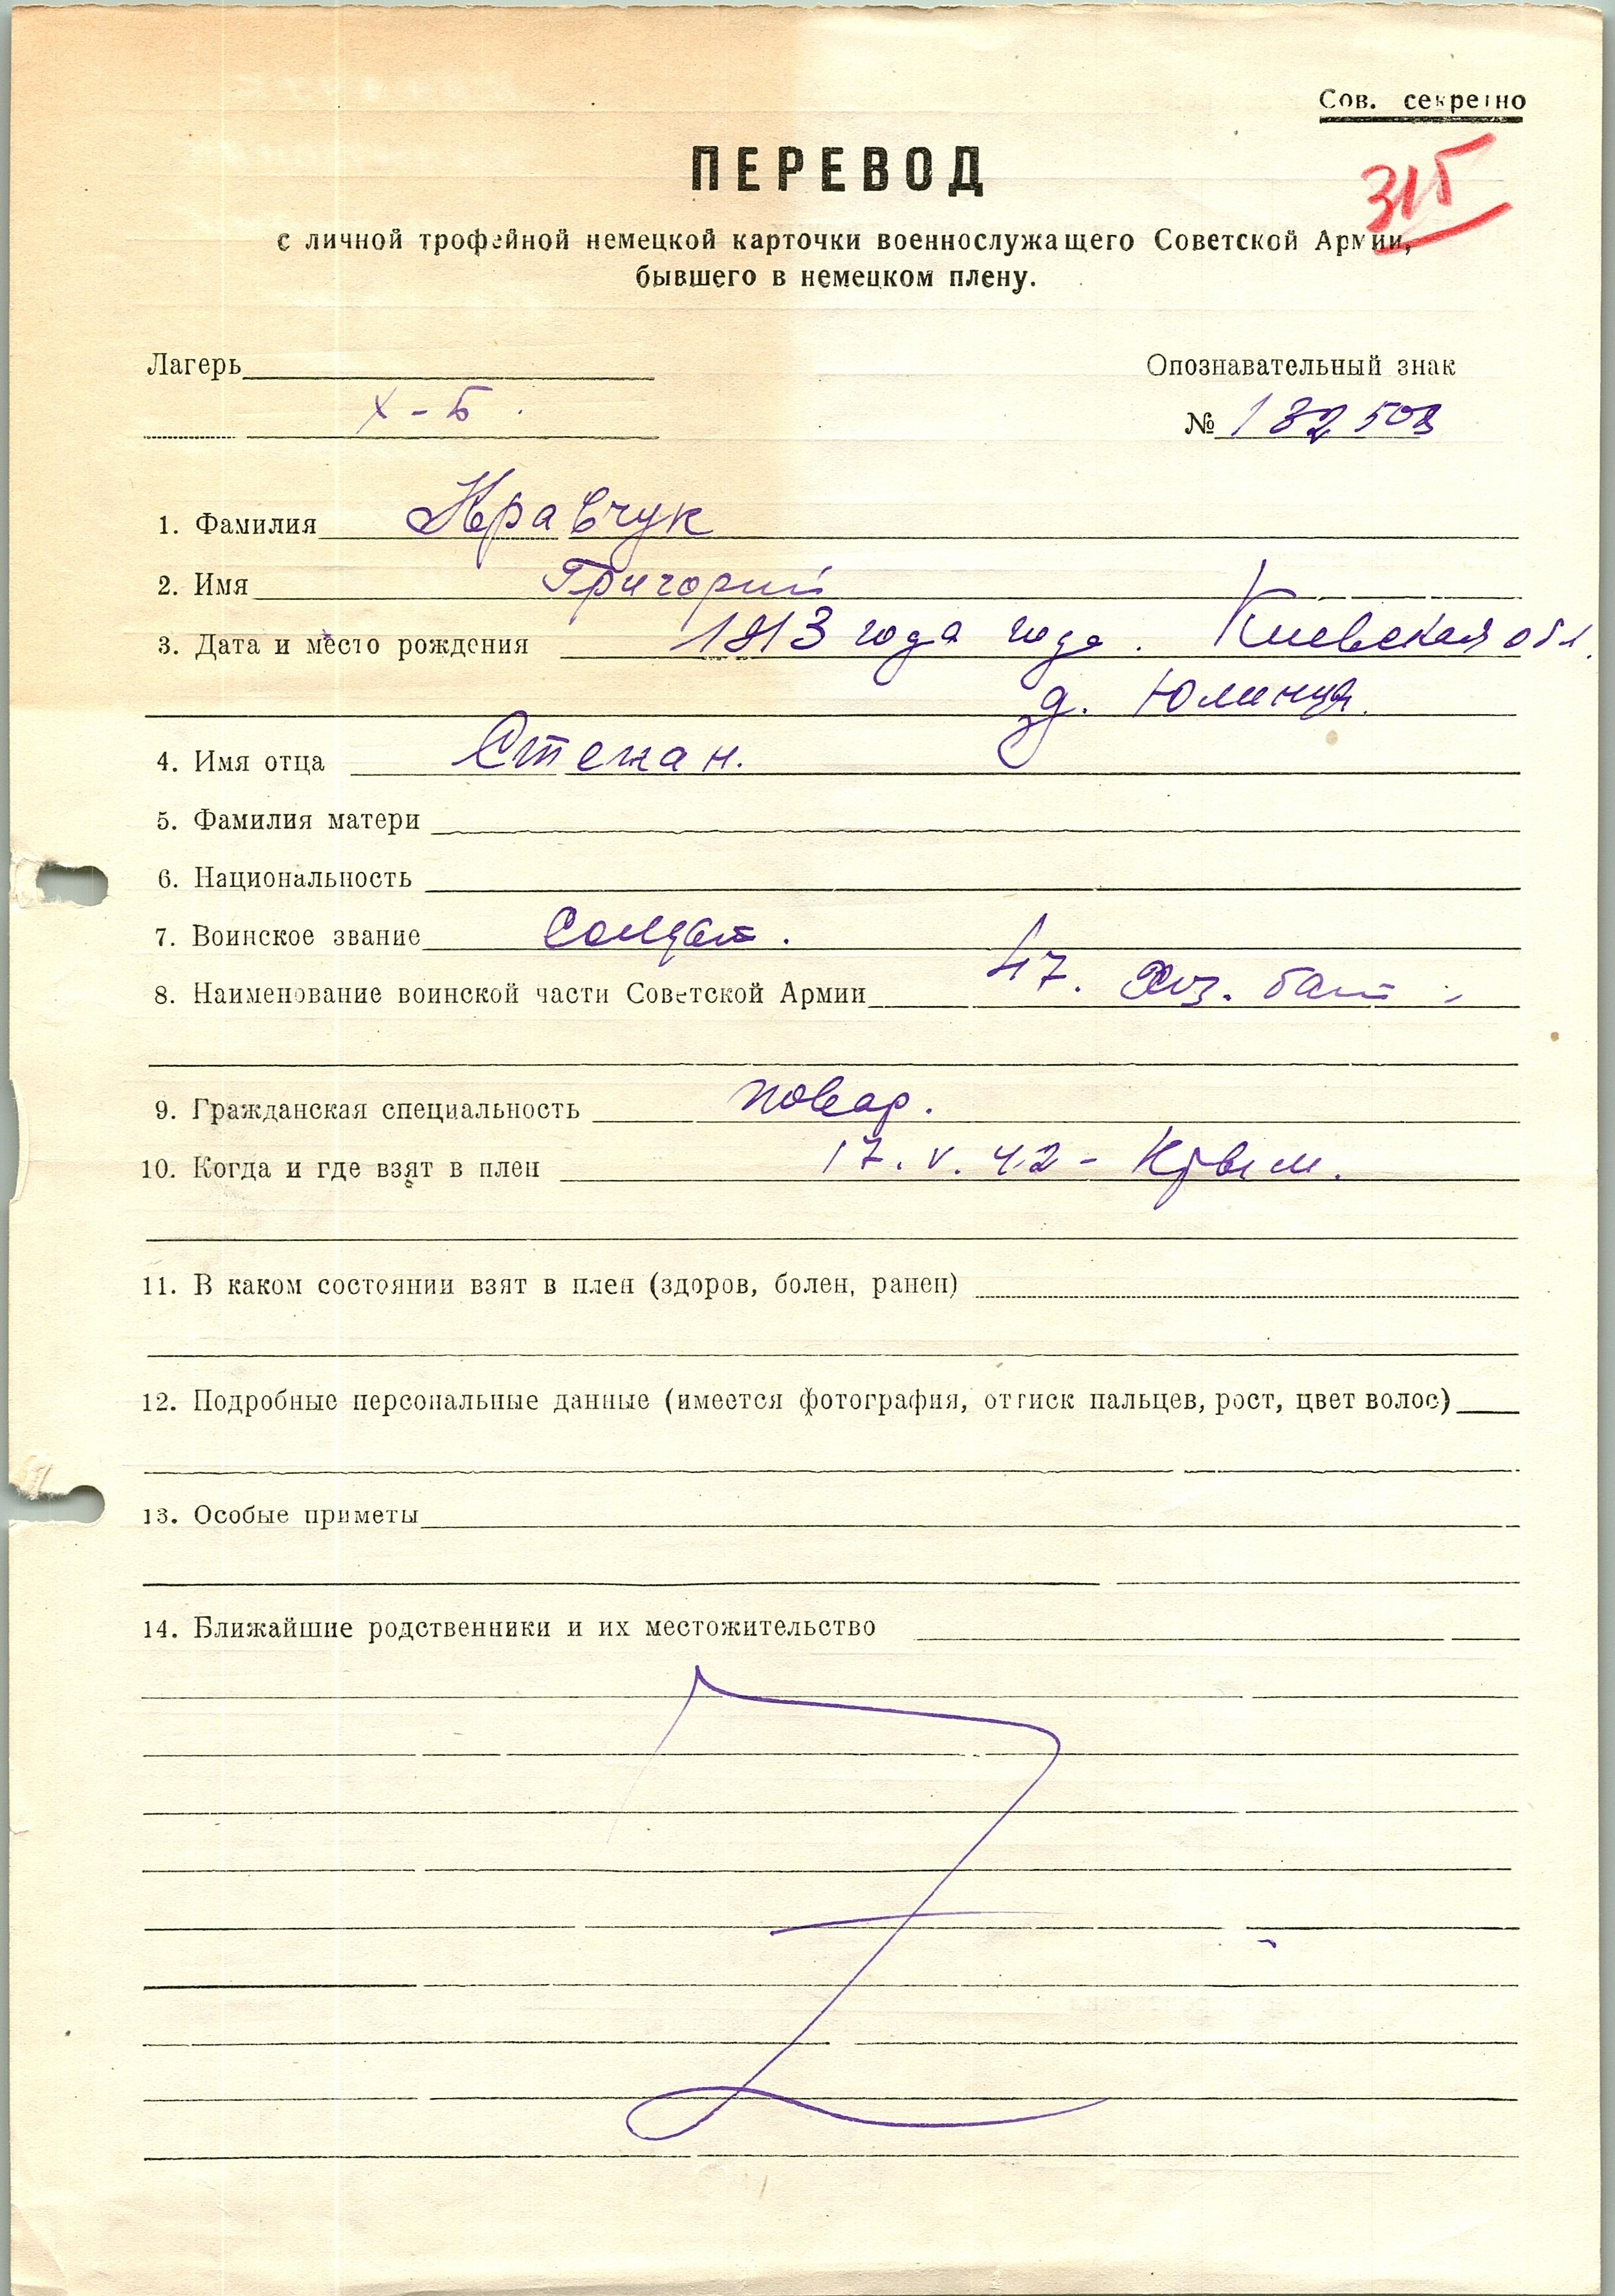 Сов. секретно
ПЕРЕВОД
315
с личной трофейной немецкой карточки военнослужащего Советской Армии,
бывшего в немецком плену.
Лагерь
Опознавательный знак
X-Б.
№ 182508
1. Фамилия Кравчук
2. Имя Григорий
3. Дата и место рождения 1913 года года. Киевская обл.
д. Юлинця.
4. Имя отца Степан.
5. Фамилия матери
6. Национальность
7. Воинское звание Солдат.
8. Наименование воинской части Советской Армии 47. Хоз. бат.
9. Гражданская специальность повар.
10. Когда и где взят в плен 17.V.42 - Крым.
11. В каком состоянии взят в плен (здоров, болен, ранен)
12. Подробные персональные данные (имеется фотография, оттиск пальцев, рост, цвет волос)
13. Особые приметы
14. Ближайшие родственники и их местожительство